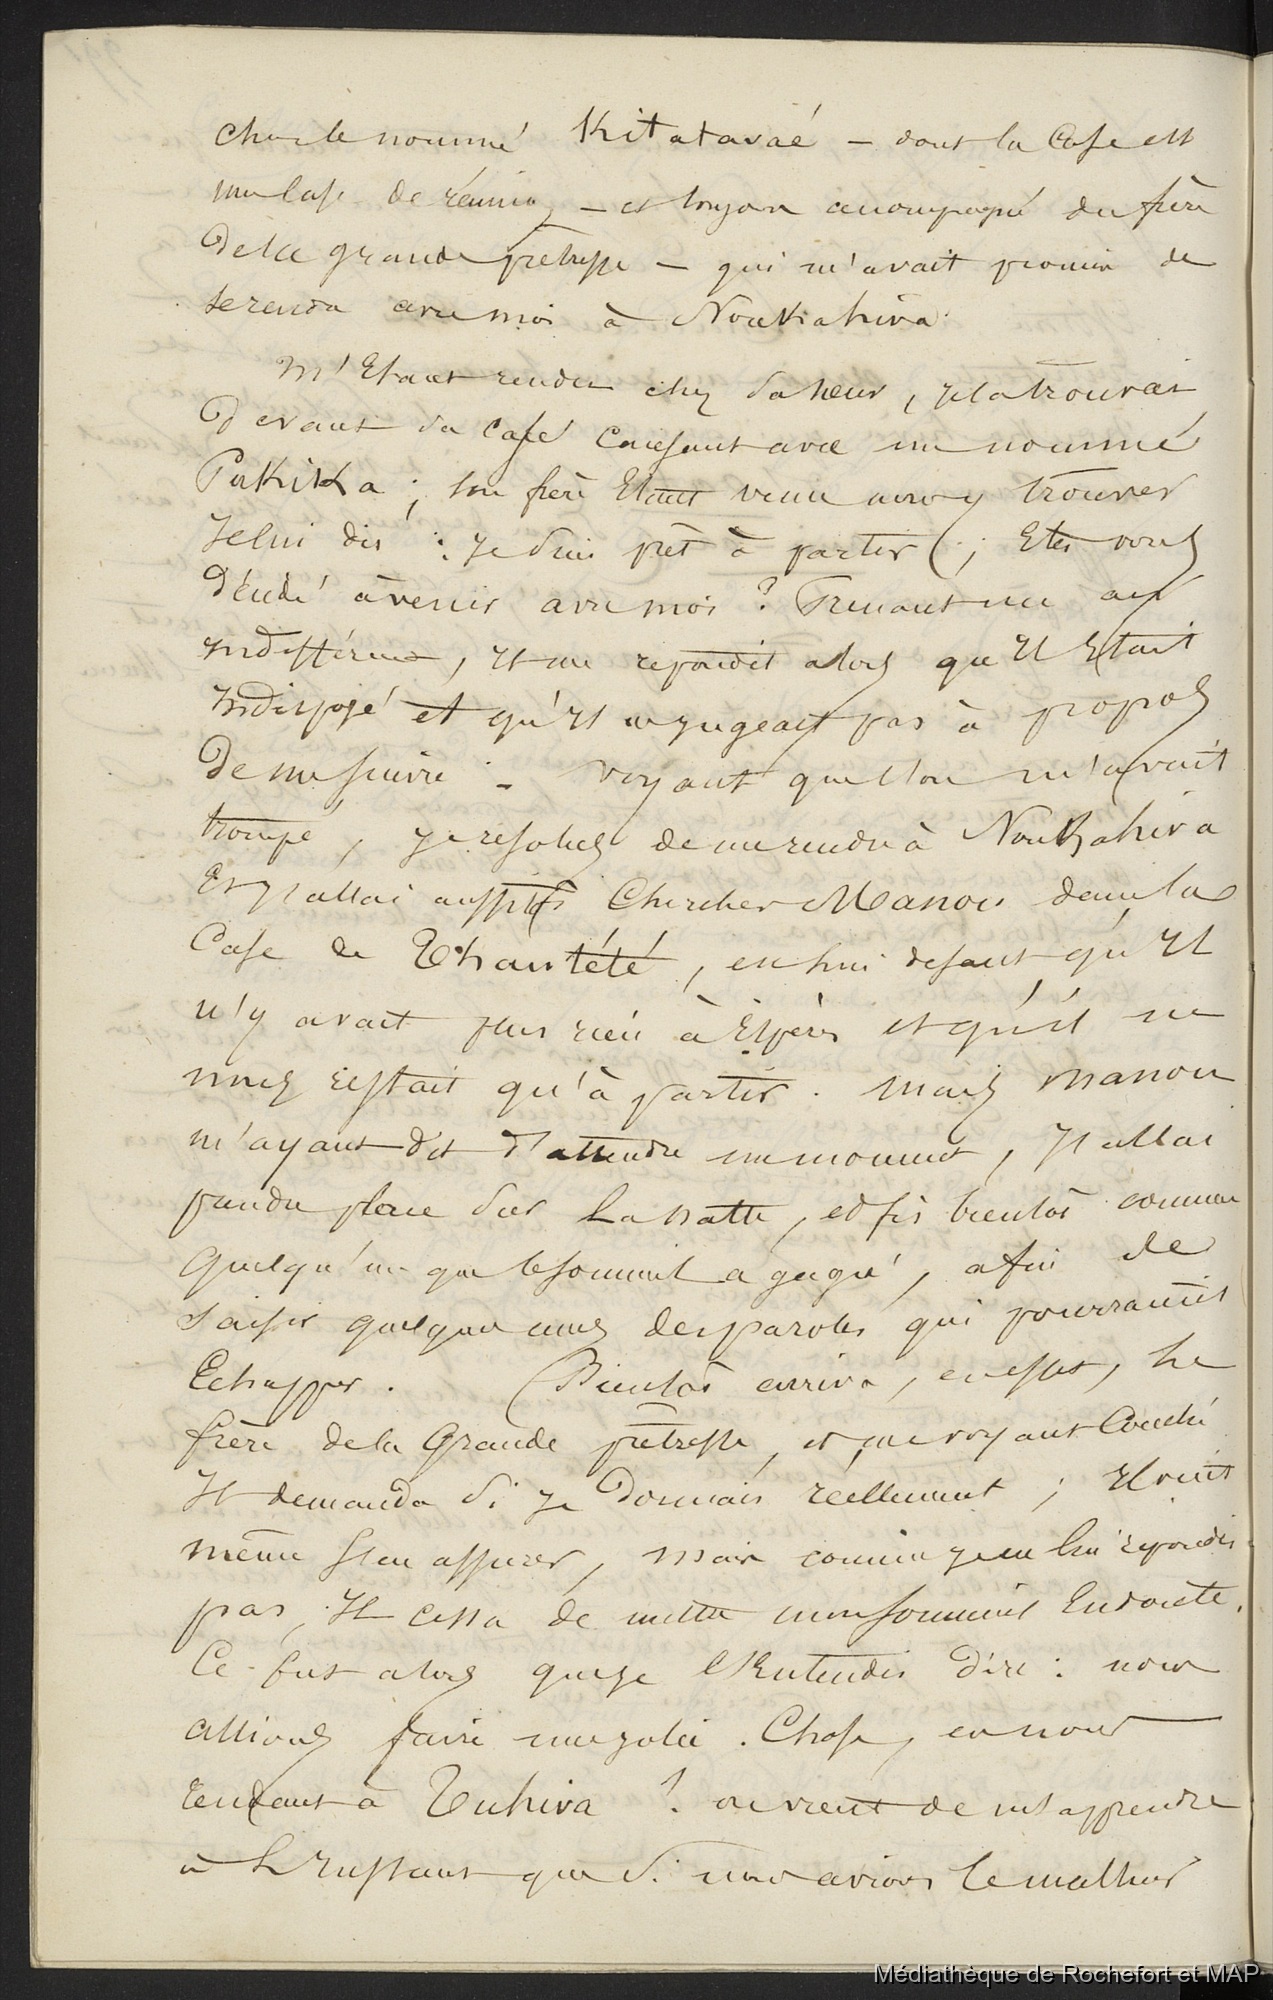 chez le nommé Kitatavaé – dont la Case est
une Case de réunion – et toujours accompagné du frère
De la grande prêtresse – qui m'avait promis de
se rendre avec moi à Noukahiva.
M'Etant rendu chez sa sœur, je la trouvais
Devant sa case causant avec un nommé
Pakika ; son frère Etant venu nous y trouver
Je lui dis : Je suis prêt à partir ; Etes vous
Décidé à venir avec moi ? Prenant un air
indifférent, Il me repondit alors qu'Il Etait
Indisposé et qu'Il ne jugeait pas à propos
De me suivre. – voyant que l'on m'avait
trompé, je résolus de me rendre à Noukahiva
Et j'allai aussitôt Chercher Manou dans la
Case de Thautété, en lui disant qu'Il
n'y avait plus rien à Espérer et qu'il ne
nous restait qu'à partir. Mais Manou
m'ayant dit d'attendre un moment, J'allai
prendre place sur La natte, et fis bientôt comme
quelqu'un que le sommeil a gagné, afin de
saisir quelques unes des paroles qui pourraient
Echapper. Bientôt arriva, en effet, Le
frère de la Grande prêtresse, et me voyant Couché
Il demanda si je Dormais réellement ; Il vint
même s'en assurer, mais comme je ne lui repondis
pas, Il cessa de mettre mon sommeil En doute.
Ce fut alors que je l'Entendis dire : nous
allions faire une jolie Chose, en nous
rendant à Tuhiva ! on vient de m'apprendre
à L'Instant que si nous avions le malheur
Médiathèque de Rochefort et MAP